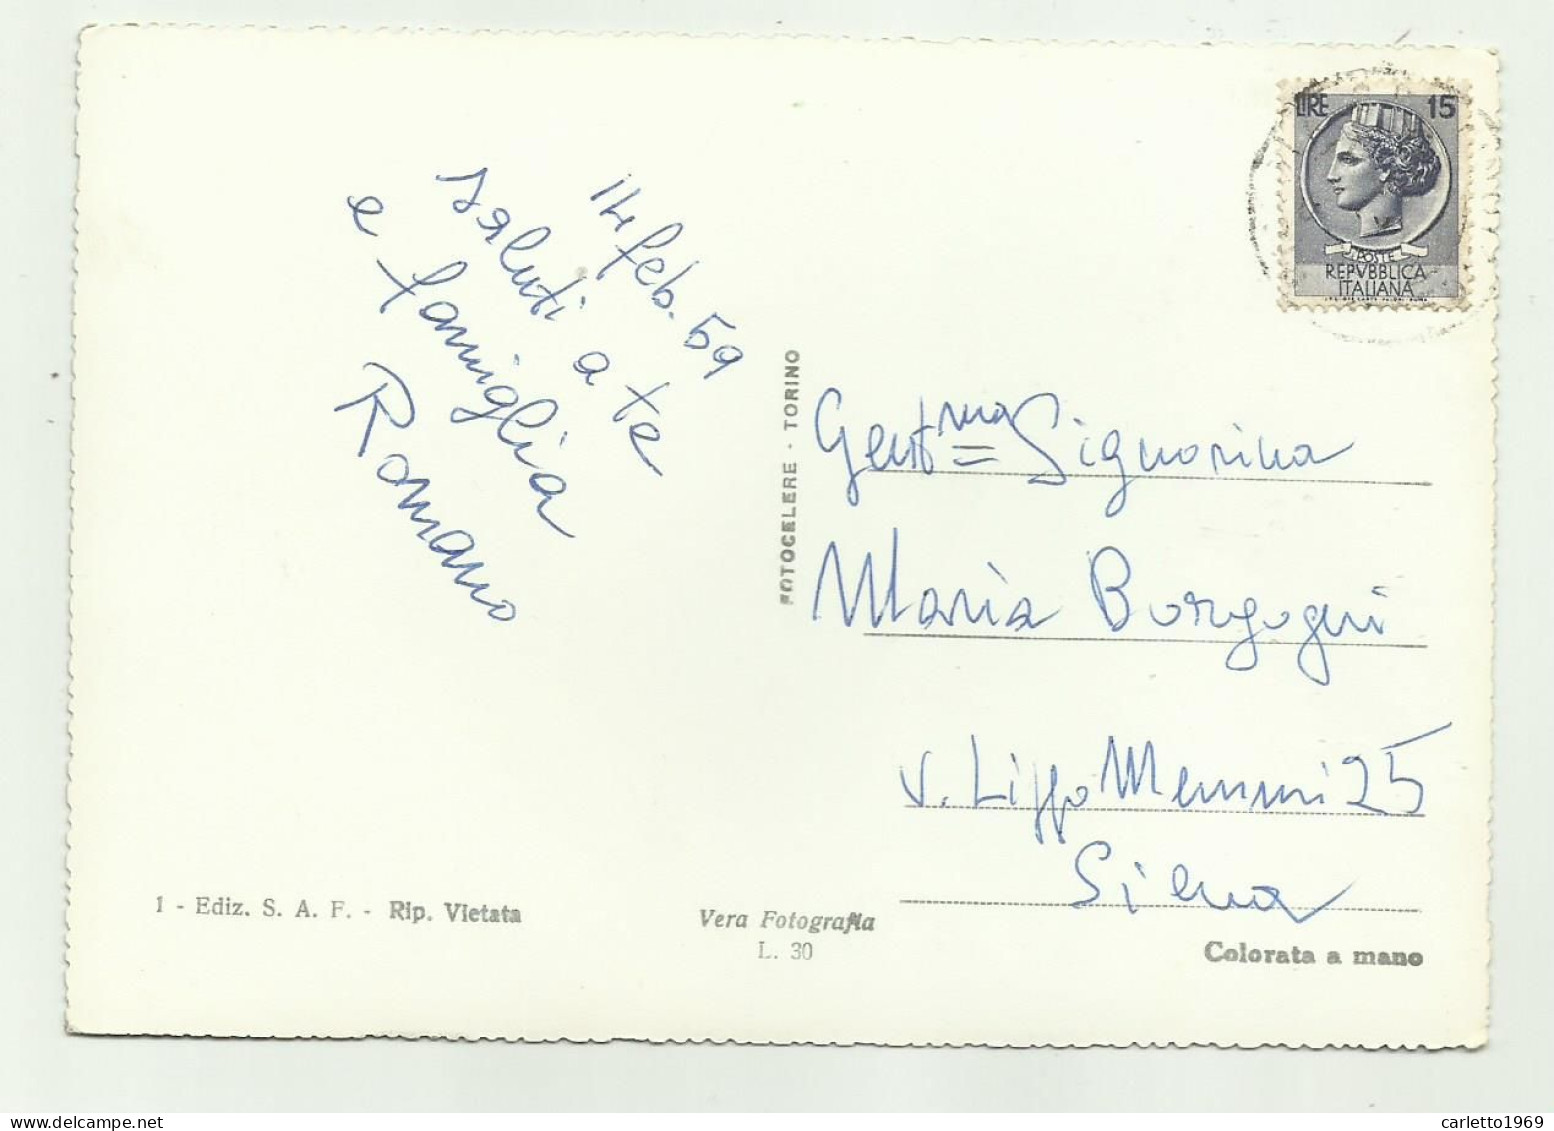 14 feb. 59
saluti a te
e famiglia
Romano
LIRE 15
POSTE
REPVBBLICA
ITALIANA
FOTOCELERE - TORINO
Gent.ma Signorina
Maria Borgogni
v. Lippo Memmi 25
Siena
1 - Ediz. S. A. F. - Rip. Vietata
Vera Fotografia
L. 30
Colorata a mano
delcampe.net
carletto1969